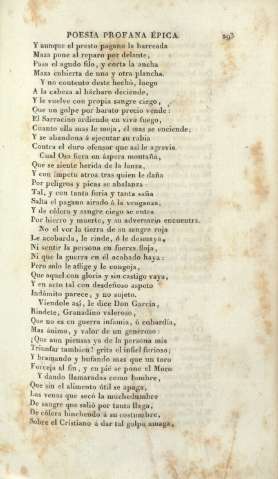 POESIA PROFANA ÉPICA. 293
Y aunque el presto pagano la barreada
Maza pone al reparo por delante,
Pasa el agudo filo, y corta la ancha
Maza cubierta de una y otra plancha.
Y no contento deste hecho, luego
A la cabeza al bárbaro deciende,
Y le vuelve con propia sangre ciego,
Que un golpe por barato precio vende:
El Sarracino ardiendo en vivo fuego,
Cuanto ella mas le moja, él mas se enciende,
Y se abandona á ejecutar su rabia
Contra el duro ofensor que asi le agravia.
Cual Osa fiera en áspera montaña,
Que se siente herida de la lanza,
Y con ímpetu atroz tras quien le daña
Por peligros y picas se abalanza
Tal, y con tanta furia y tanta saña
Salta el pagano airado á la venganza,
Y de cólera y sangre ciego se entra
Por hierro y muerte, y su adversario encuentra.
No el ver la tierra de su sangre roja
Le acobarda, le rinde, ó le desmaya,
Ni sentir la persona en fuerza floja,
Ni que la guerra en él acabado haya:
Pero solo le aflige y le congoja,
Que aquel con gloria y sin castigo vaya,
Y en acto tal con desdeñoso aspeto
Indómito parece, y no sujeto.
Viéndole asi, le dice Don Garcia,
Ríndete, Granadino valeroso,
Que no es en guerra infamia, ó cobardía,
Mas ánimo, y valor de un generoso:
¿Que aun piensas yo de la persona mia
Triunfar tambien? grita el infiel furioso;
Y bramando y bufando mas que un toro
Forceja al fin, y en pie se pone el Moro
Y dando llamaradas como lumbre,
Que sin el alimento útil se apaga,
Las venas que secó la muchedumbre
De sangre que salió por tanta llaga,
De cólera hinchendo á su costumbre,
Sobre el Cristiano á dar tal golpe amaga,